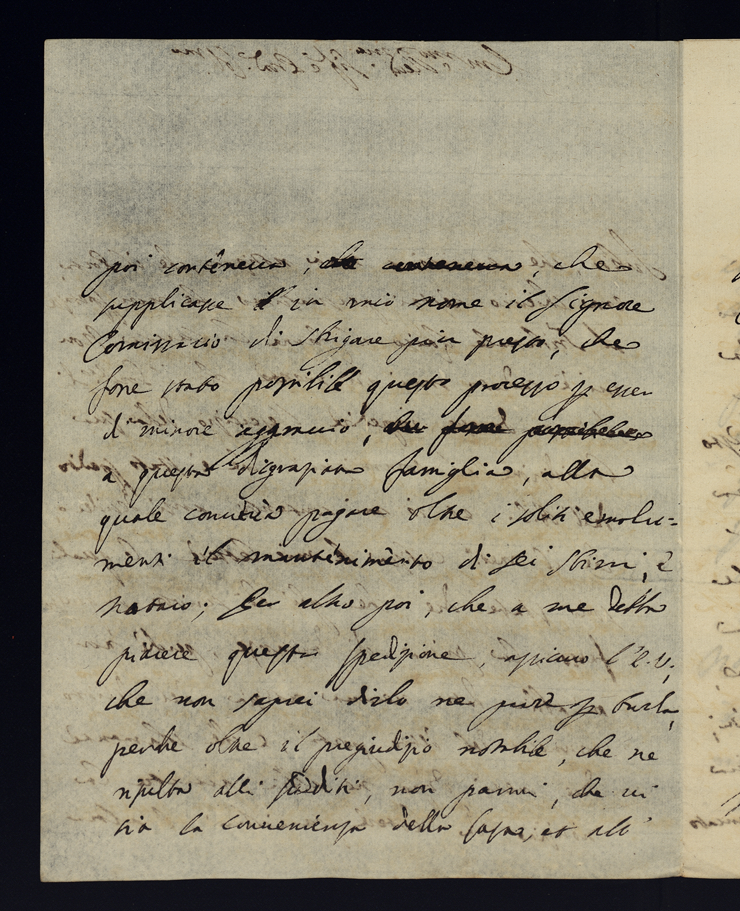 poi conteneva, che
supplicasse in mio nome il Signore
Comissario di sbrigare piu presto, che
fosse stato possibile questo processo p esser
di minore aggravio,
a questa disgraziata famiglia, alla
quale conuerrà pagare oltre i soliti emolu=
menti il mantenimento di sei sbirri, e
Notaio; Per altro poi, che a me debba
piacere questa spedizione, assicuro l'E.V.,
che non saprei dirlo ne pure p burla,
perche oltre il pregiudizio notabile, che ne
risulta alli sudditi, non parmi, che ui
sia la conuenienza della